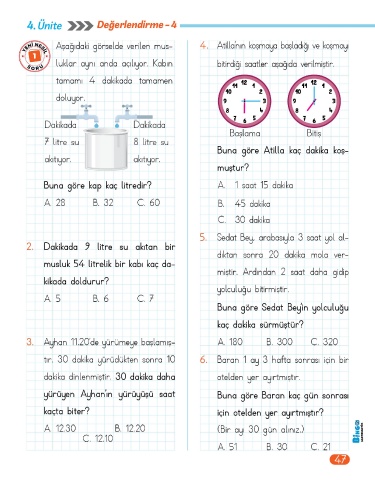 4. Ünite
Değerlendirme - 4
YENİ NESİL
1
SORU
Aşağıdaki görselde verilen mus-
luklar aynı anda açılıyor. Kabın
tamamı 4 dakikada tamamen
doluyor.
Dakikada
7 litre su
akıtıyor.
Dakikada
8 litre su
akıtıyor.
Buna göre kap kaç litredir?
A. 28 B. 32 C. 60
2. Dakikada 9 litre su akıtan bir
musluk 54 litrelik bir kabı kaç da-
kikada doldurur?
A. 5 B. 6 C. 7
3. Ayhan 11.20'de yürümeye başlamış-
tır. 30 dakika yürüdükten sonra 10
dakika dinlenmiştir. 30 dakika daha
yürüyen Ayhan'ın yürüyüşü saat
kaçta biter?
A. 12.30 B. 12.20
C. 12.10
4. Atilla'nın koşmaya başladığı ve koşmayı
bitirdiği saatler aşağıda verilmiştir.
12 1 2 3 4 5 6 7 8 9 10 11
12 1 2 3 4 5 6 7 8 9 10 11
Başlama
Bitiş
Buna göre Atilla kaç dakika koş-
muştur?
A. 1 saat 15 dakika
B. 45 dakika
C. 30 dakika
5. Sedat Bey, arabasıyla 3 saat yol al-
dıktan sonra 20 dakika mola ver-
miştir. Ardından 2 saat daha gidip
yolculuğu bitirmiştir.
Buna göre Sedat Bey'in yolculuğu
kaç dakika sürmüştür?
A. 180 B. 300 C. 320
6. Baran 1 ay 3 hafta sonrası için bir
otelden yer ayırtmıştır.
Buna göre Baran kaç gün sonrası
için otelden yer ayırtmıştır?
(Bir ayı 30 gün alınız.)
A. 51 B. 30 C. 21
Bingo
47